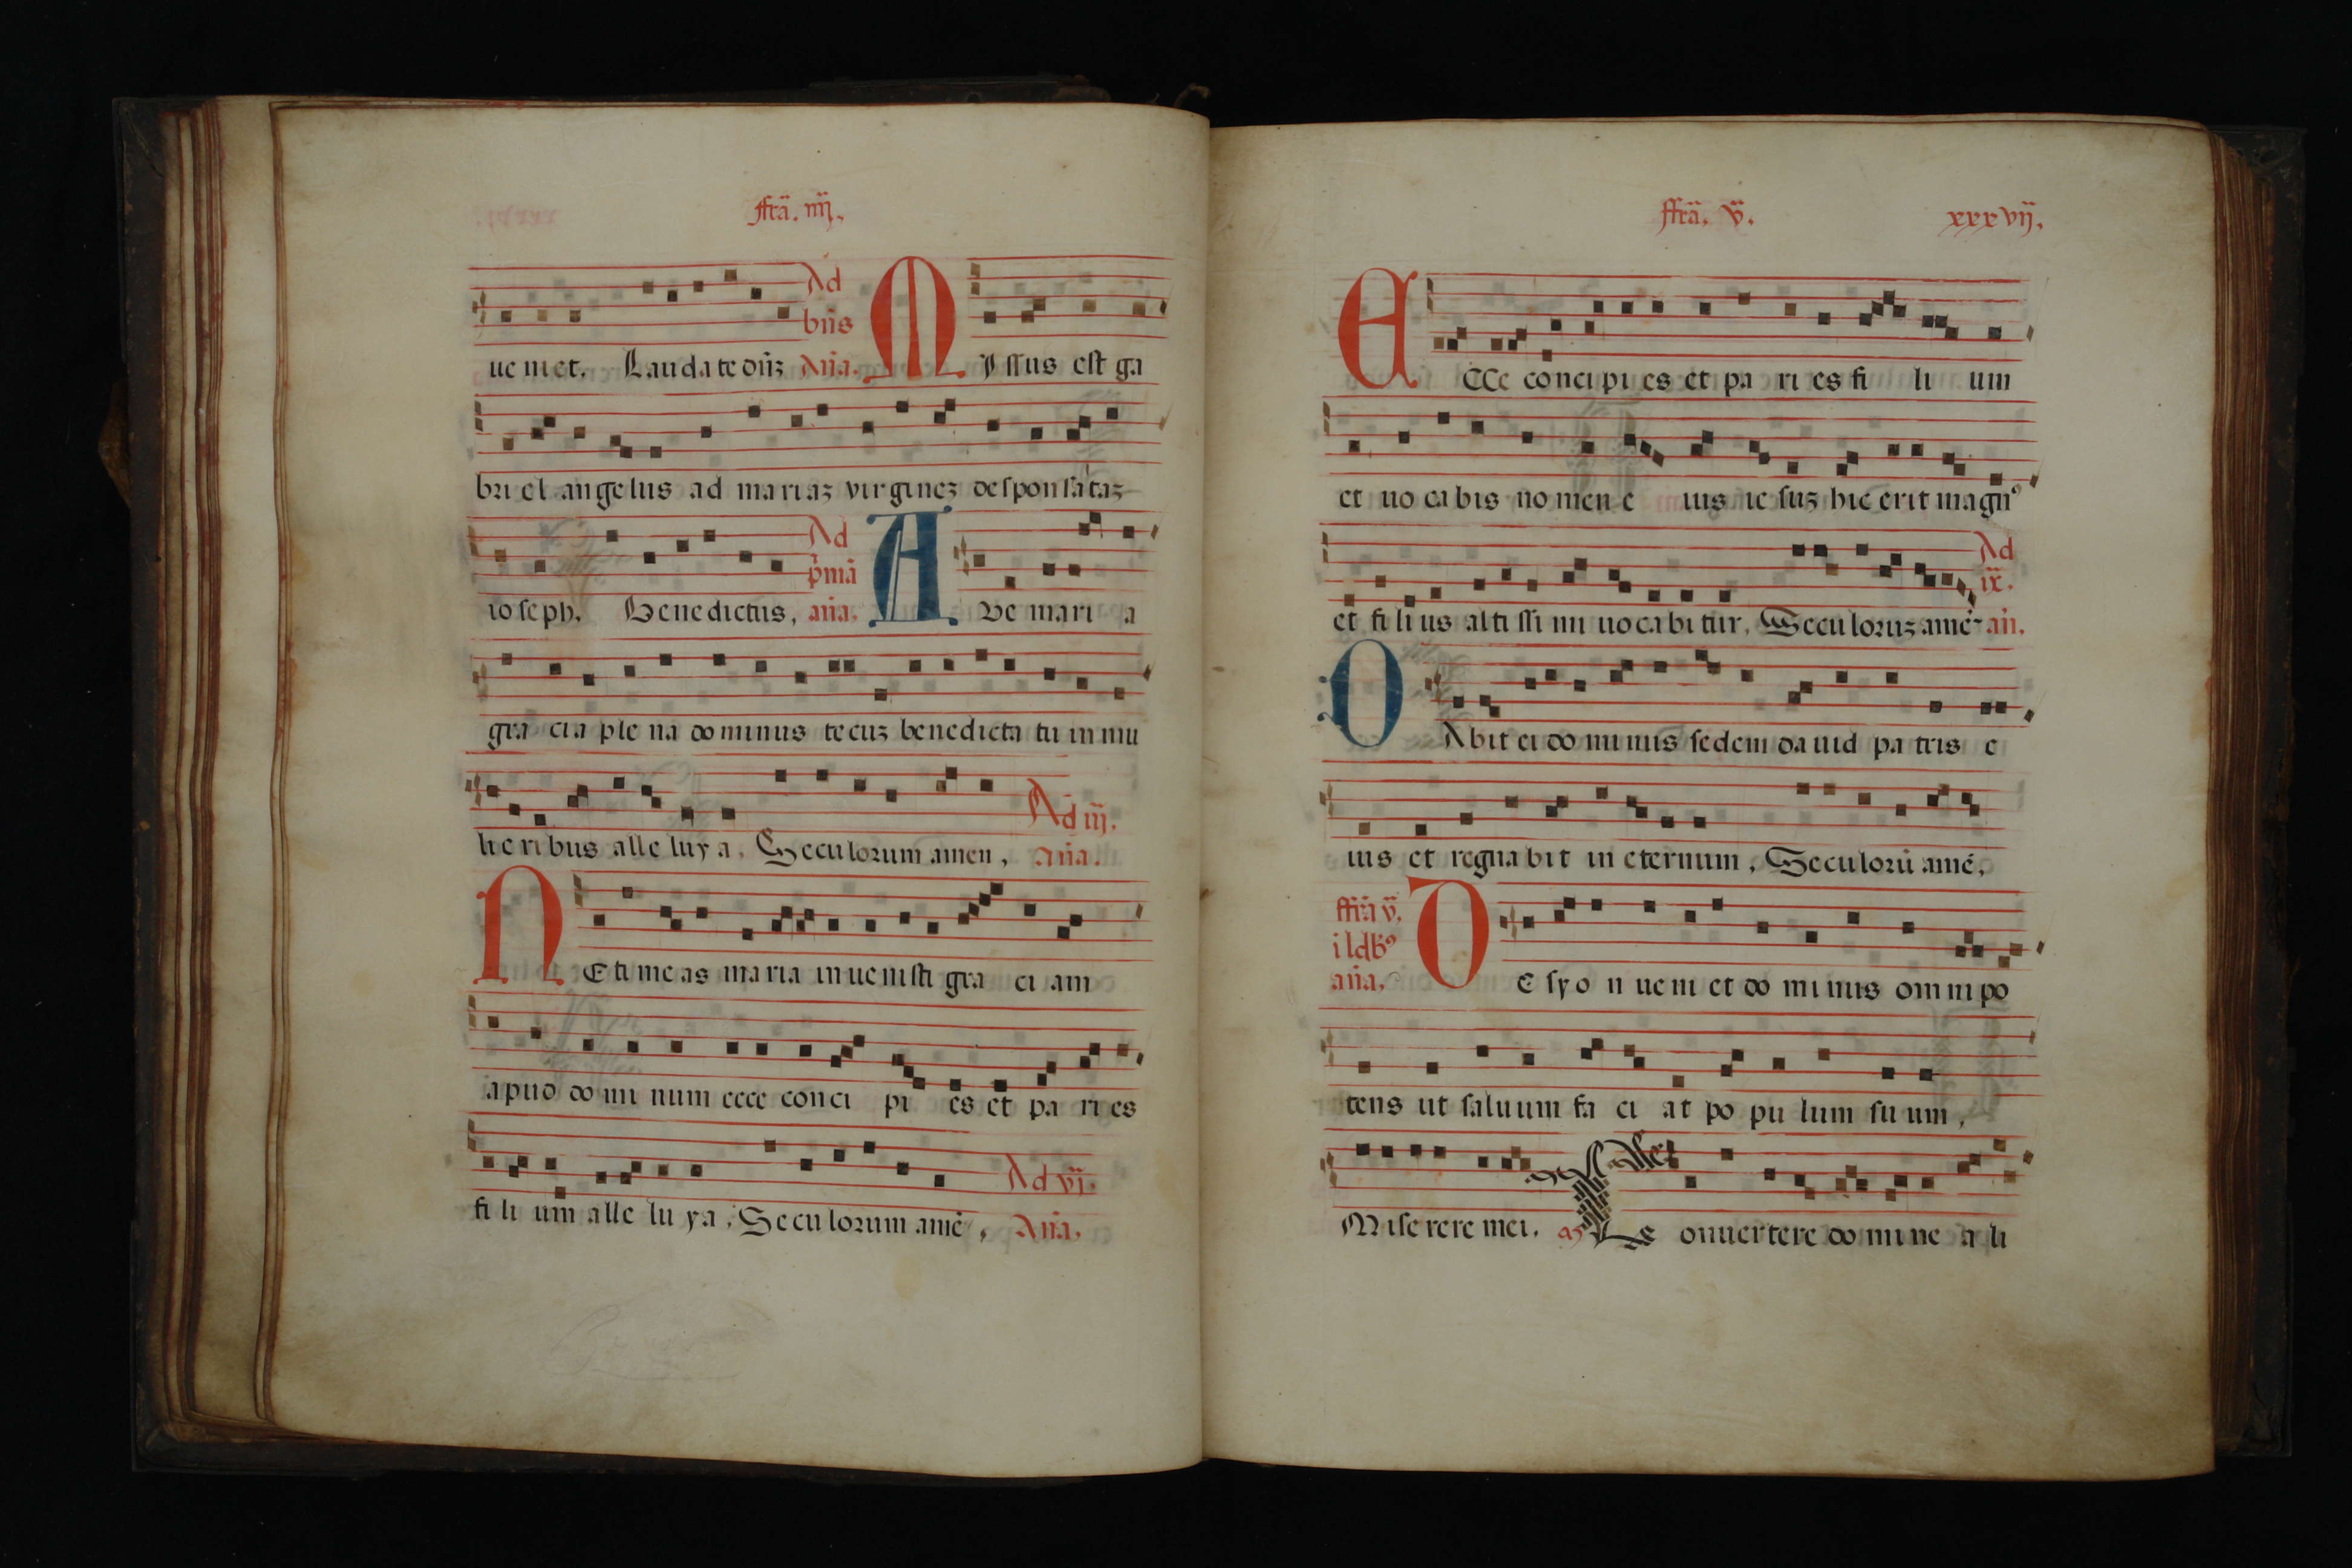 ffrã. iiij.
ue niet. Laudate dñz Ad bñs Aña. M Issus est ga
bri el angelus ad mariaz virginez desponsataz
ioseph. Benedictus, Ad p̃mã aña. A Ve mari a
gra cia ple na dominus tecuz benedicta tu in mu
lie ribus alle luya. Seculorum amen, Ad iij. Aña.
N E ti me as maria in ue nisti gra ci am
apud do mi num ecce conci pi es et pa ri es
fi li um alle lu ya, Seculorum amē, Ad vj. Aña.
ffrã. v. xxxvij.
E CCe concipi es et pa ri es fi li um
et uo ca bis no men e ius ie suz hic erit magn⁹
et fi li us alti ssi mi uo ca bi tur. Seculoruz amē Ad ix. añ.
D Abit ei do mi nus sedem da uid pa tris e
ius et regna bit in eternum, Seculorū amē,
ffrã v. i ldb⁹ aña. D E syo n ue ni et do mi nus om ni po
tens ut saluum fa ci at po pu lum su um,
Mise rere mei. Conuertere do mi ne a li